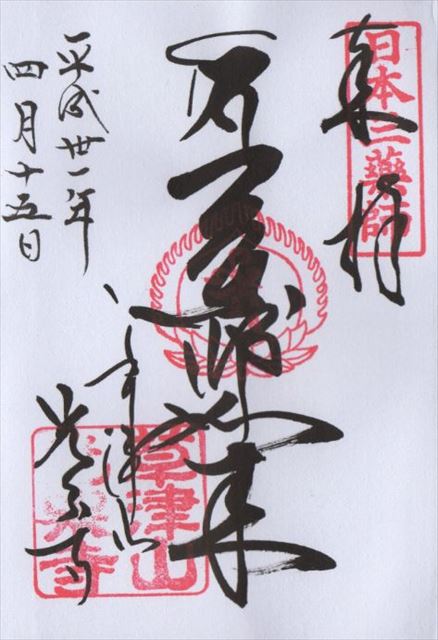 奉拝
日本三薬師
薬師如来
草津山
光泉寺
草津山
光泉寺
平成卅一年
四月十五日